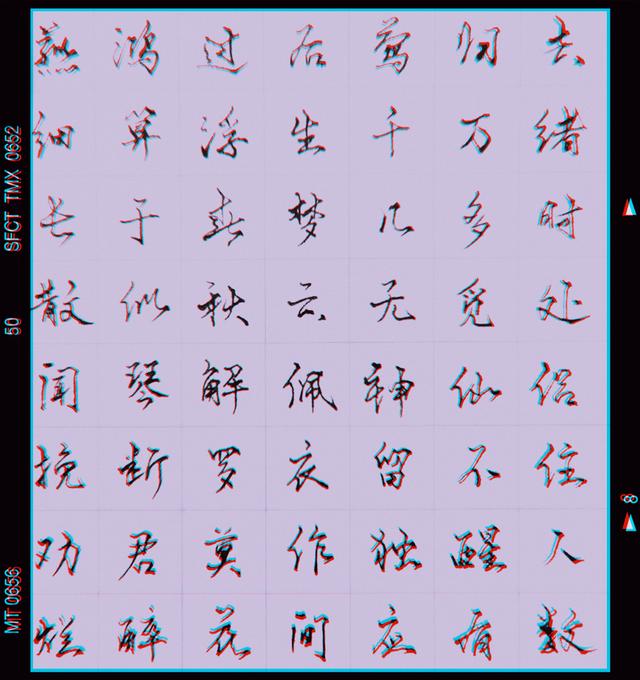 燕鸿过后莺归去
细算浮生千万绪
长于春梦几多时
散似秋云无觅处
闻琴解佩神仙侣
挽断罗衣留不住
劝君莫作独醒人
烂醉花间应有数
SFCT TMX 0652
50
MT 0656
8